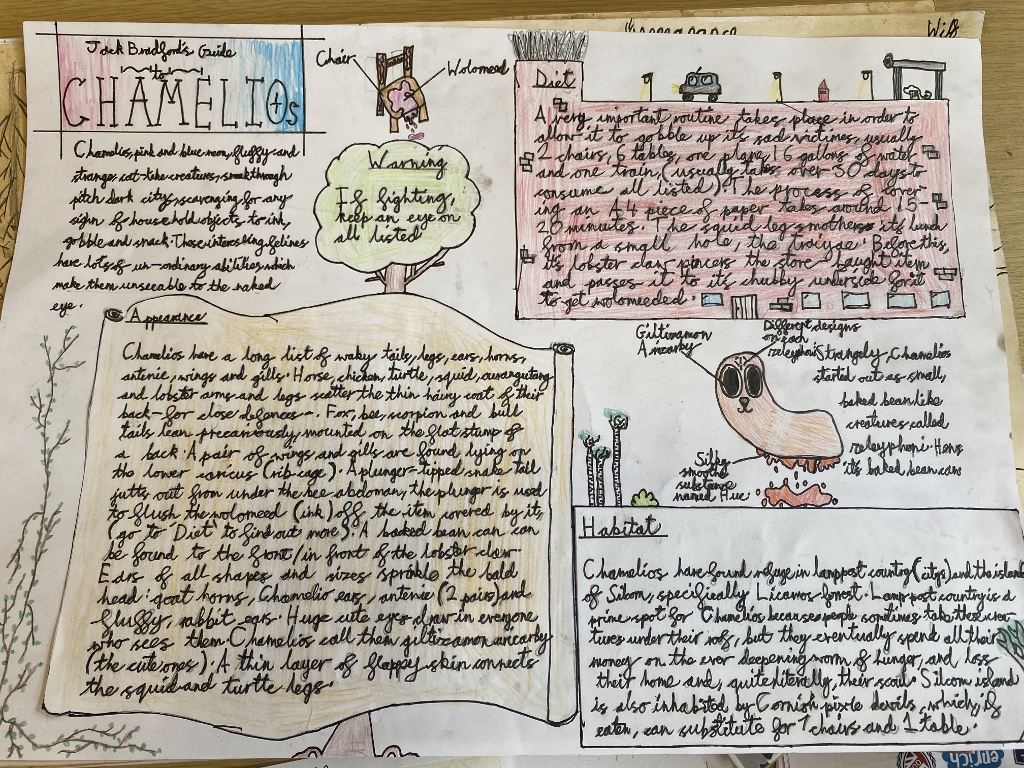 Jack Bradford's Guide
to
CHAMELIOs
Chamelios, pink and blue neon, fluffy and
strange cat-like creatures, sneak through
pitch dark citys, scavenging for any
sign of household objects to ink,
gobble and snack. These interesting felines
have lots of un-ordinary abilities which
make them unseeable to the naked
eye.
Chair
Wolomeed
Warning
If fighting,
keep an eye on
all listed
Diet
A very important routine takes place in order to
allow it to gobble up its sad victims, usually
2 chairs, 6 tables, one plane, 16 gallons of water
and one train, (usually takes over 30 days to
consume all listed). The process of cover
ing an A4 piece of paper takes around 15-
20 minutes. The squid leg smothers its lunch
from a small hole, the . Before this,
its lobster claw pincers the store bought item
and passes it to its chubby underside for it
to get wolomeeded.
Appearance
Chamelios have a long list of waky tails, legs, ears, horns,
antenie, wings and gills. Horse, chicken, turtle, squid, ourangutang
and lobster arms and legs scatter the thin hairy coat of their
back-for close defences-. Fox, bee, scorpion and bull
tails lean precariously mounted on the flat stump of
a back. A pair of wings and gills are found lying on
the lower (rib-cage). A plunger-tipped snake tail
jutts out from under the bee abdoman, the plunger is used
to flush the wolomeed (ink) off the item covered by it,
(go to 'Diet' to find out more). A baked bean can can
be found to the front/in front of the lobster claw.
Ears of all shapes and sizes sprinkle the bald
head: goat horns, Chamelio ears, antenie (2 pairs) and
fluffy, rabbit ears. Huge cute eyes draw in everyone
who sees them. Chamelios call them
(the cute ones). A thin layer of flappy skin connects
the squid and turtle legs.
Different designs
on each
Silky
smooth
substance
named Hue
Strangely, Chamelios
started out as small,
baked bean like
creatures called
releyphoni. Hens
it's baked bean can
Habitat
Chamelios have found refuge in lamppost country (citys) and the island
of Silcom, specifically Licanos forest. Lamppost country is a
prime spot for Chamelios because people somtimes take these crea-
tures under their roof, but they eventually spend all their
money on the ever deepening worm of hunger, and loss
their home and, quite literally, their soul. Silcom island
is also inhabited by Cornish pixie devils, which, if
eaten, can substitute for 7 chairs and 1 table.
enrich